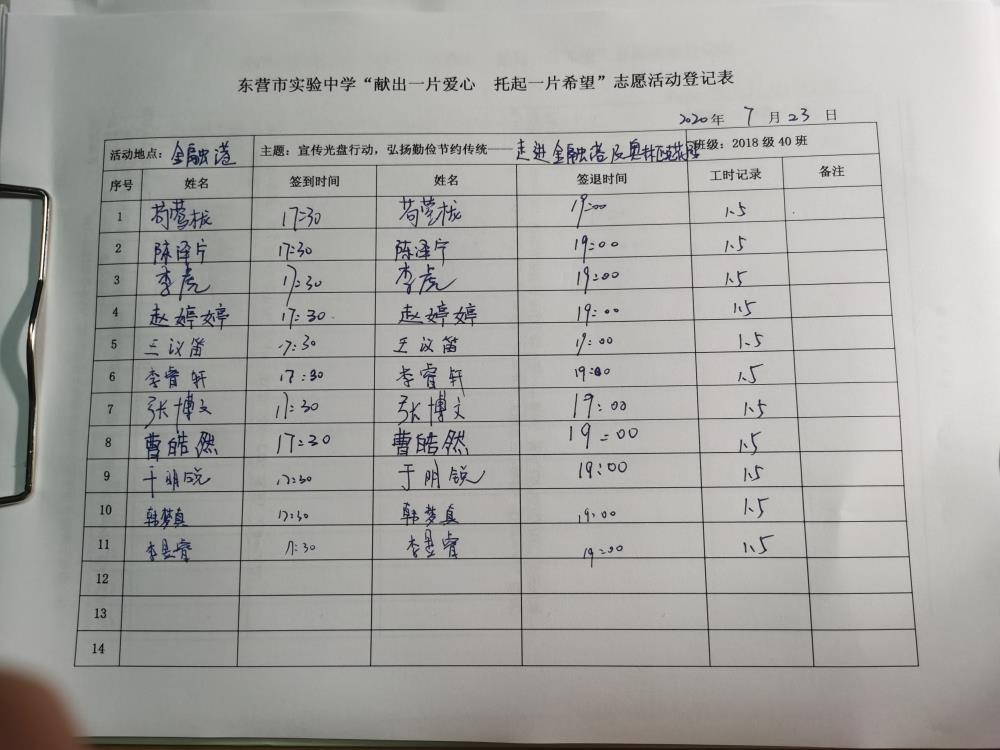 东营市实验中学“献出一片爱心 托起一片希望”志愿活动登记表
2020年 7 月 23 日
活动地点：金融港 主题：宣传光盘行动，弘扬勤俭节约传统——走进金融港及奥林匹克花园 班级：2018 级 40 班
序号 姓名 签到时间 姓名 签退时间 工时记录 备注
1 17:30 19:00 1.5
2 陈泽宁 17:30 陈泽宁 19:00 1.5
3 李虎 17:30 李虎 19:00 1.5
4 赵婷婷 17:30 赵婷婷 19:00 1.5
5 王议笛 17:30 王议笛 19:00 1.5
6 李睿轩 17:30 李睿轩 19:00 1.5
7 张博文 17:30 张博文 19:00 1.5
8 曹皓然 17:30 曹皓然 19:00 1.5
9 于明锐 17:30 于明锐 19:00 1.5
10 韩梦真 17:30 韩梦真 19:00 1.5
11 李昱睿 17:30 李昱睿 19:00 1.5
12
13
14